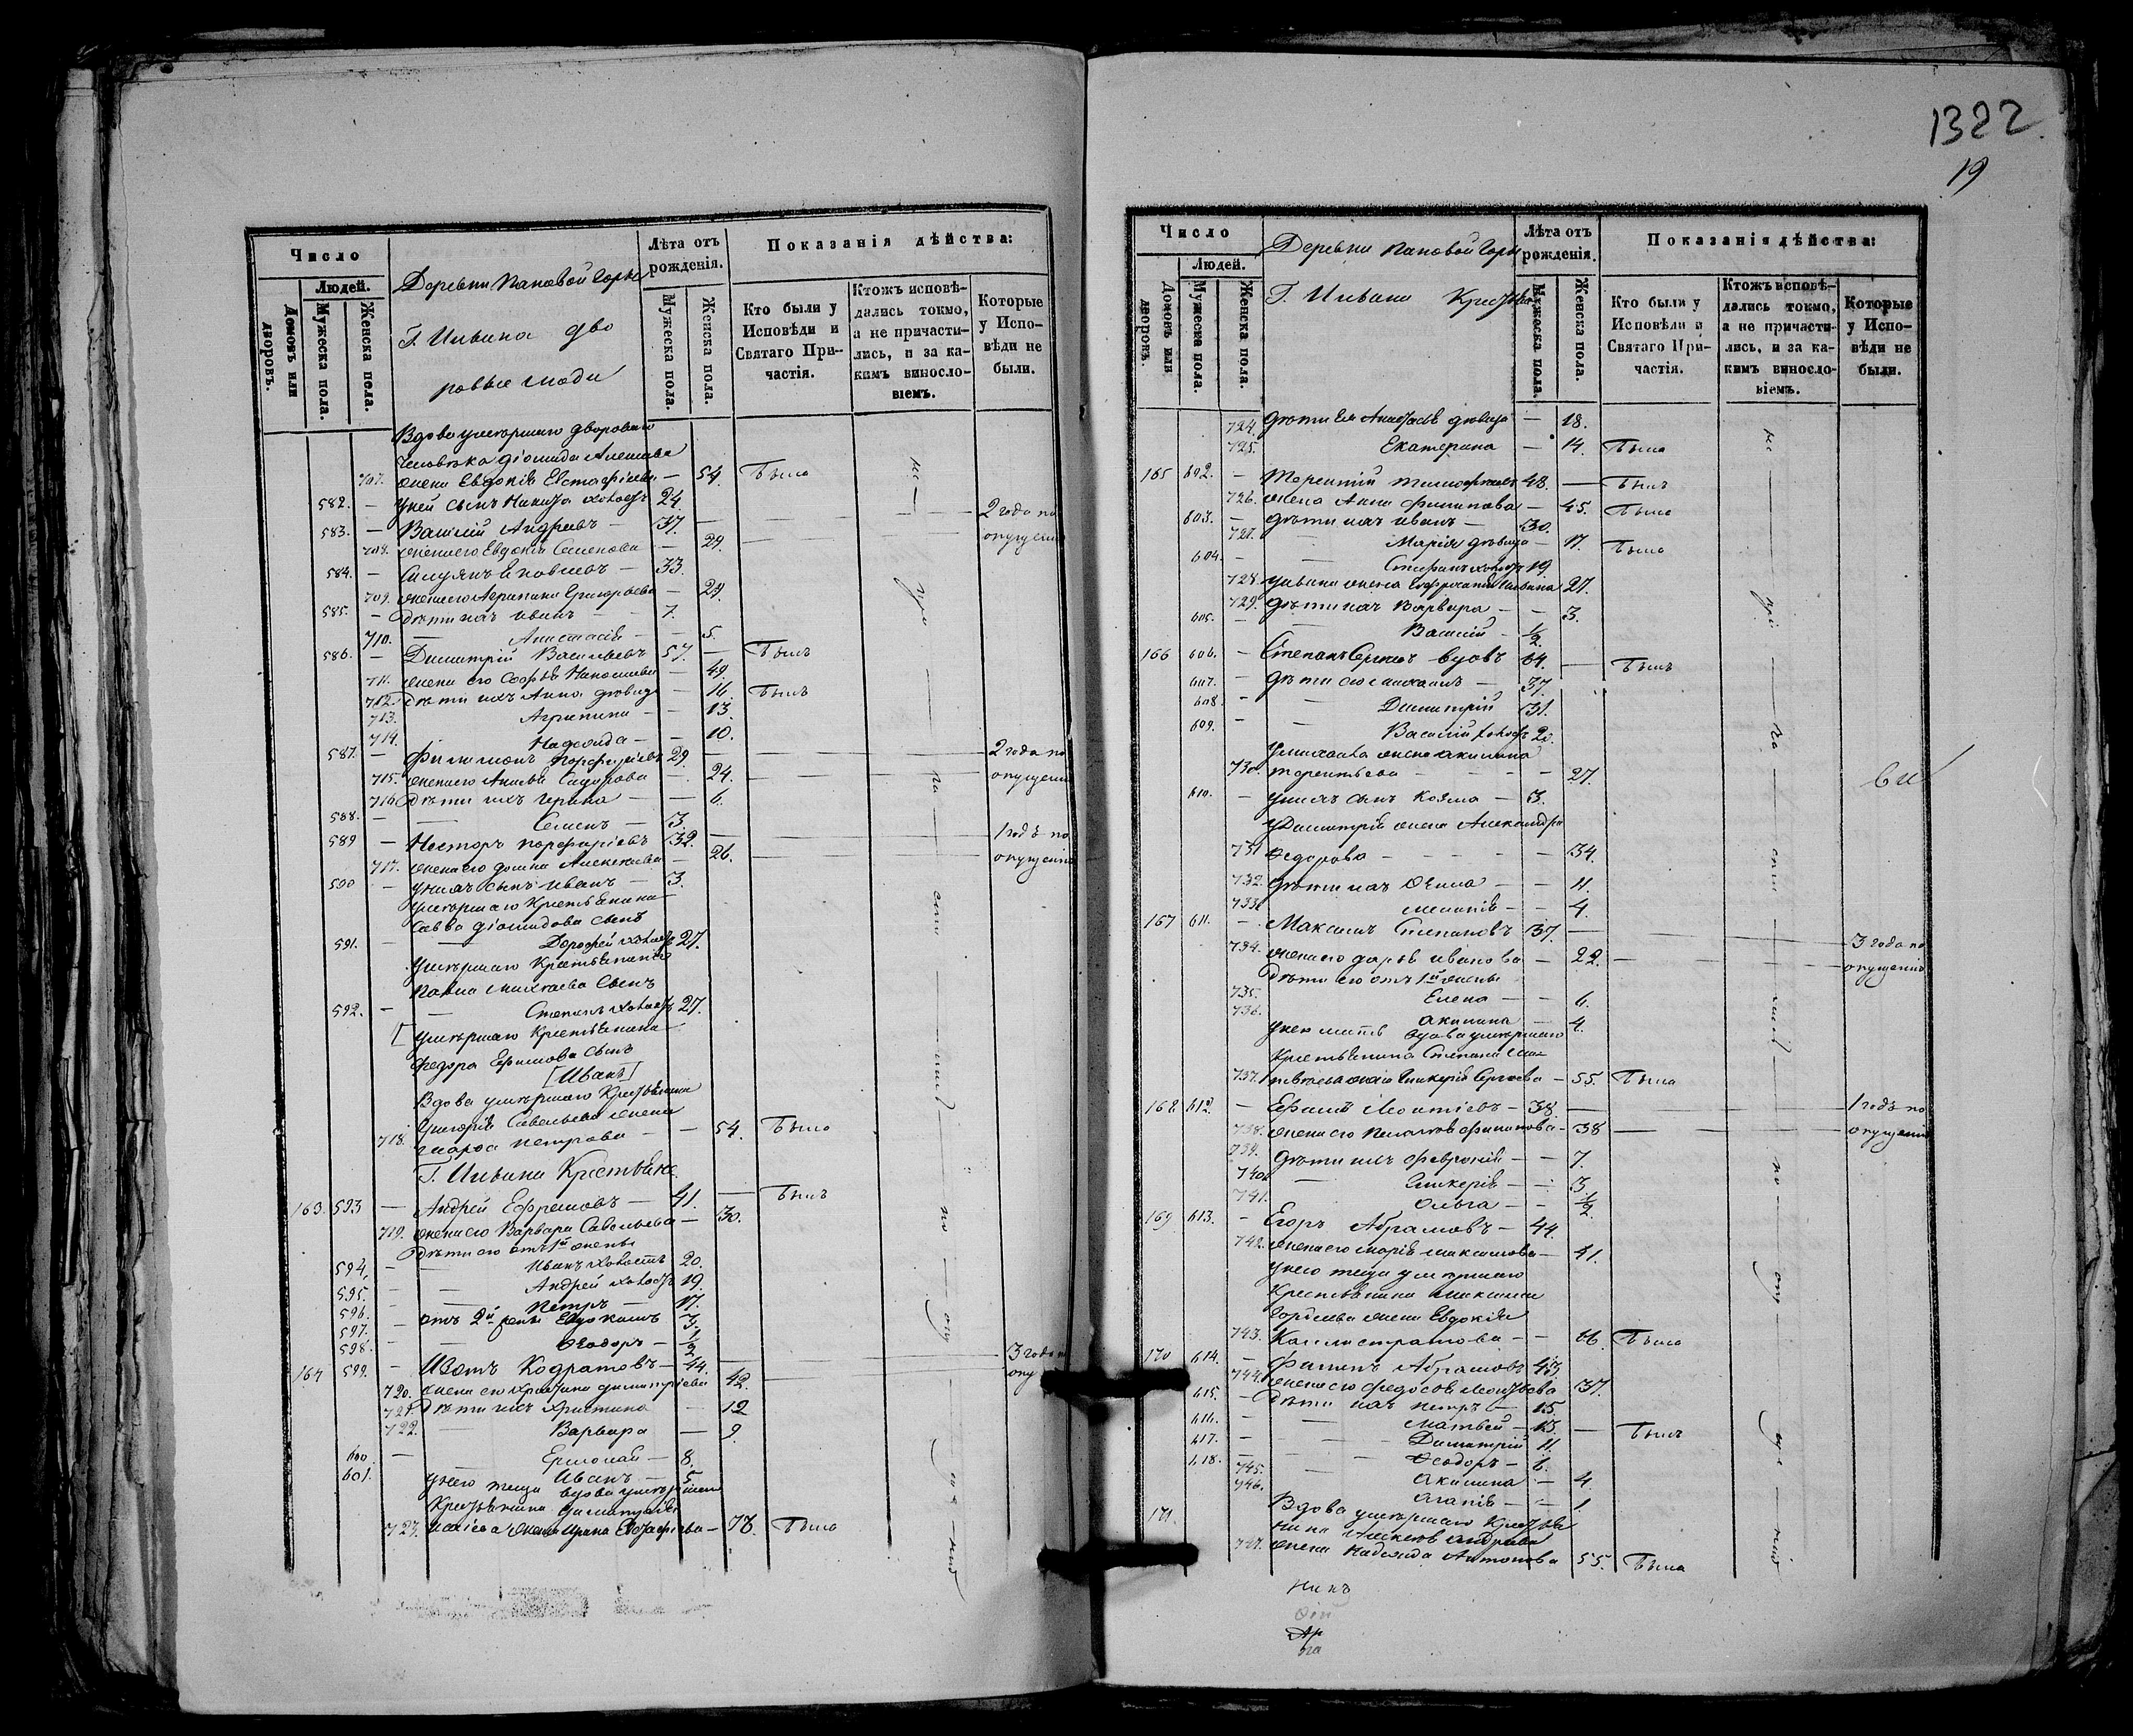 1322
19
Число
Людей.
Домовъ или дворовъ.
Мужеска пола.
Женска пола.
Деревни Пановой Горы
Г. Ильина дво
ровые люди
Лѣта отъ рожденія.
Мужеска пола.
Женска пола.
Показанія дѣйства:
Кто были у Исповѣди и Святаго При-частія.
Ктожъ исповѣ-дались токмо, а не причасти-лись, и за ка-кимъ винословіемъ.
Которые у Испо-вѣди не были.
Вдова умершаго дворового
человѣка Діомида Алексѣева
707. жена Евдокія Евстафіева — 54. Была
582. — у ней сынъ Никита холостъ 24.
583. — Василій Андреевъ — 37. — 2 года по
708. жена его Евдокія Семенова — 29. опущенію
584. — — 33.
709. жена его Агрипина Григорьева — 29.
585. — Дѣти ихъ Иванъ — 7.
710. — Анастасія — 5.
586. — Димитрій Васильевъ 57. — Былъ
711. жена его — 49.
712. Дѣти ихъ Анна дѣвица — 16. Былъ
713. Агрипина — 13.
714. Надежда — 10.
587. — Филимонъ Порфирьевъ 29. — 2 года по
715. жена его Сидорова — 24. опущенію
716. Дѣти ихъ Ирина — 6.
588. — — Семенъ — 3.
589 — Несторъ Порфирьевъ 32. — 1 годъ по
717. жена его Домна Алексѣева — 26. опущенію
590 — у нихъ сынъ Иванъ — 3.
умершаго Крестьянина
Савва Діомидова сынъ
591. — — Дорофей холостъ 27.
умершаго Крестьянина
Павла Михаева Сынъ
592. — — Степанъ холостъ 27.
[умершаго Крестьянина
Федора Ефимова сынъ
[Иванъ]
Вдова умершаго Крестьянина
Григорія Савельева жена
718. Петрова — — 54. Была
Г. Ильина Крестьяне
163. 593 — Андрей Ефремовъ — 41. — Былъ
719. жена его Варвара Савельева — 30.
Дѣти его отъ 1й жены
594. — — Иванъ холостъ 20.
595. — — Андрей холостъ 19.
596. — — Петръ — 17.
597. — отъ 2й жены Евдокимъ 3.
598. — — Ѳеодоръ — ½
164 599. — Кодратовъ — 44. — 3 года
720. жена его Христина Димитріева 42.
721. Дѣти ихъ Христина — 12
722. — Варвара — 9.
600 — — Ермолай — 8.
601. Иванъ — 5.
у него теща вдова умершаго
Крестьянина Димитрія
723. жена Ирина Евстафьева — 78. Была
не — при — ча — сти — лись по — опу — ще — нію
Число
Людей.
Домовъ или дворовъ.
Мужеска пола.
Женска пола.
Деревни Пановой Горы
Г. Ильина Крестьяне
Лѣта отъ рожденія.
Мужеска пола.
Женска пола.
Показанія дѣйства:
Кто были у Исповѣди и Святаго При-частія.
Ктожъ исповѣ-дались токмо, а не причасти-лись, и за ка-кимъ винословіемъ.
Которые у Испо-вѣди не были.
724. Дѣти ея дѣвица — 18.
725. Екатерина — 14. Была
165 602. — Терентій Тимофеевъ 48. — Былъ
726. жена Анна Филипова — 45. Была
603. — Дѣти ихъ Иванъ — 30.
727. — Марія дѣвица — 17. Была
604. — — Стефанъ холостъ 19.
728. у Ивана жена 27.
729. Дѣти ихъ Варвара — — 3.
605. — — Василій — ½
166 606. — Степанъ вдовъ 64. — Былъ
607. — Дѣти его Михаилъ — 37.
608. — — Димитрій 31.
609. — — Василій холостъ 20.
у Михаила жена Акилина
730. Терентьева — — — — 27.
610. — у нихъ сынъ Козма — 3.
у Димитрія жена Александра
731 Ѳедорова — — — — 34.
732. Дѣти ихъ — — 11.
733. — — 4.
167 611. — Максимъ Степановъ 37. — 3 года по
734. жена его Дарья Иванова — 22. — опущенію
Дѣти его отъ 1й жены
735. Елена — — 6.
736. Акилина — 4.
у нея мать вдова умершаго
Крестьянина Степана
737. жена Гликерія Сергеева — 55. Была
168. 612. — Ефимъ — 38. — 1 годъ по
738. жена его Пелагея Филипова — 38 — опущенію
739. Дѣти ихъ Февронія — — 7.
740. — Гликерія — — 3
741. Ольга — — ½
169 613. — Егоръ Абрамовъ — 44.
742. жена его Марія Максимова — 41.
у него теща умершаго
Крестьянина Максима
жена Евдокія
743. Калистратова — — 66. Была
170 614. — Филипъ Абрамовъ 43.
744. жена его Федосья 37.
615. — Дѣти ихъ Петръ — 15
616. — — Матвей — 13. — Былъ
617. — — Димитрій 11.
618. — — Ѳеодоръ — 6.
745. — Акилина — 4.
746. Агапія — — 1
171. Вдова умершаго Крестья
нина Алексѣя Андреева
747. жена Надежда Антонова 55. Была
не — при — ча — сти — лись — по — опу — ще — нію